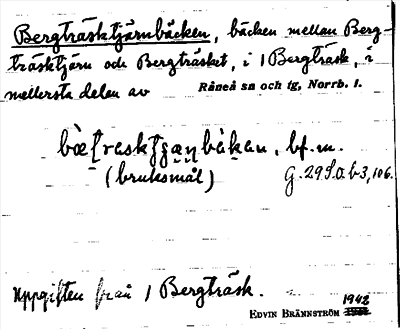 Bergträsktjärnbäcken, bäcken mellan Berg-
träsktjärn och Bergträsket, i 1 Bergträsk, i
mellersta delen av Råneå sn och tg, Norrb. l.
bf. m.
(bruksmål) G. 29 S.a. b 3, 106.
Uppgiften från 1 Bergträsk.
1942
EDVIN BRÄNNSTRÖM